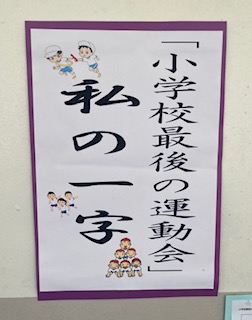 「小学校最後の運動会」
私の一字